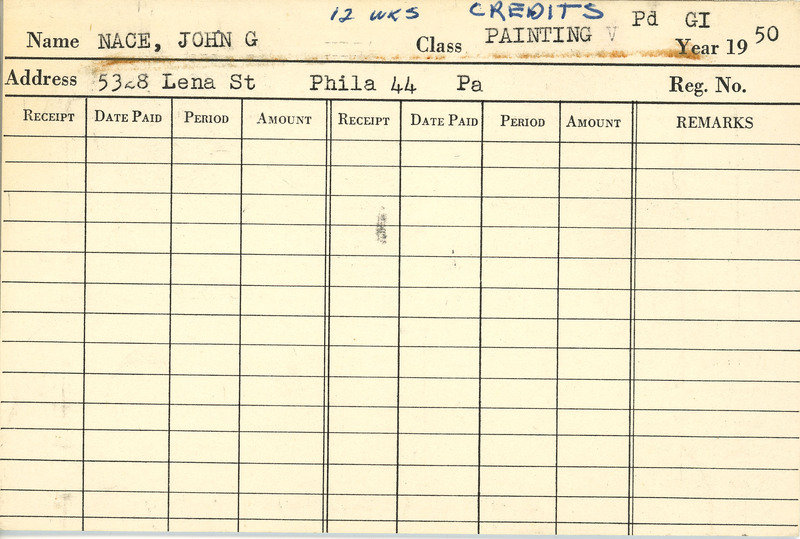 12 WKS CREDITS Pd GI
Name NACE, JOHN G Class PAINTING V Year 19 50
Address 5328 Lena St Phila 44 Pa Reg. No.
RECEIPT DATE PAID PERIOD AMOUNT RECEIPT DATE PAID PERIOD AMOUNT REMARKS